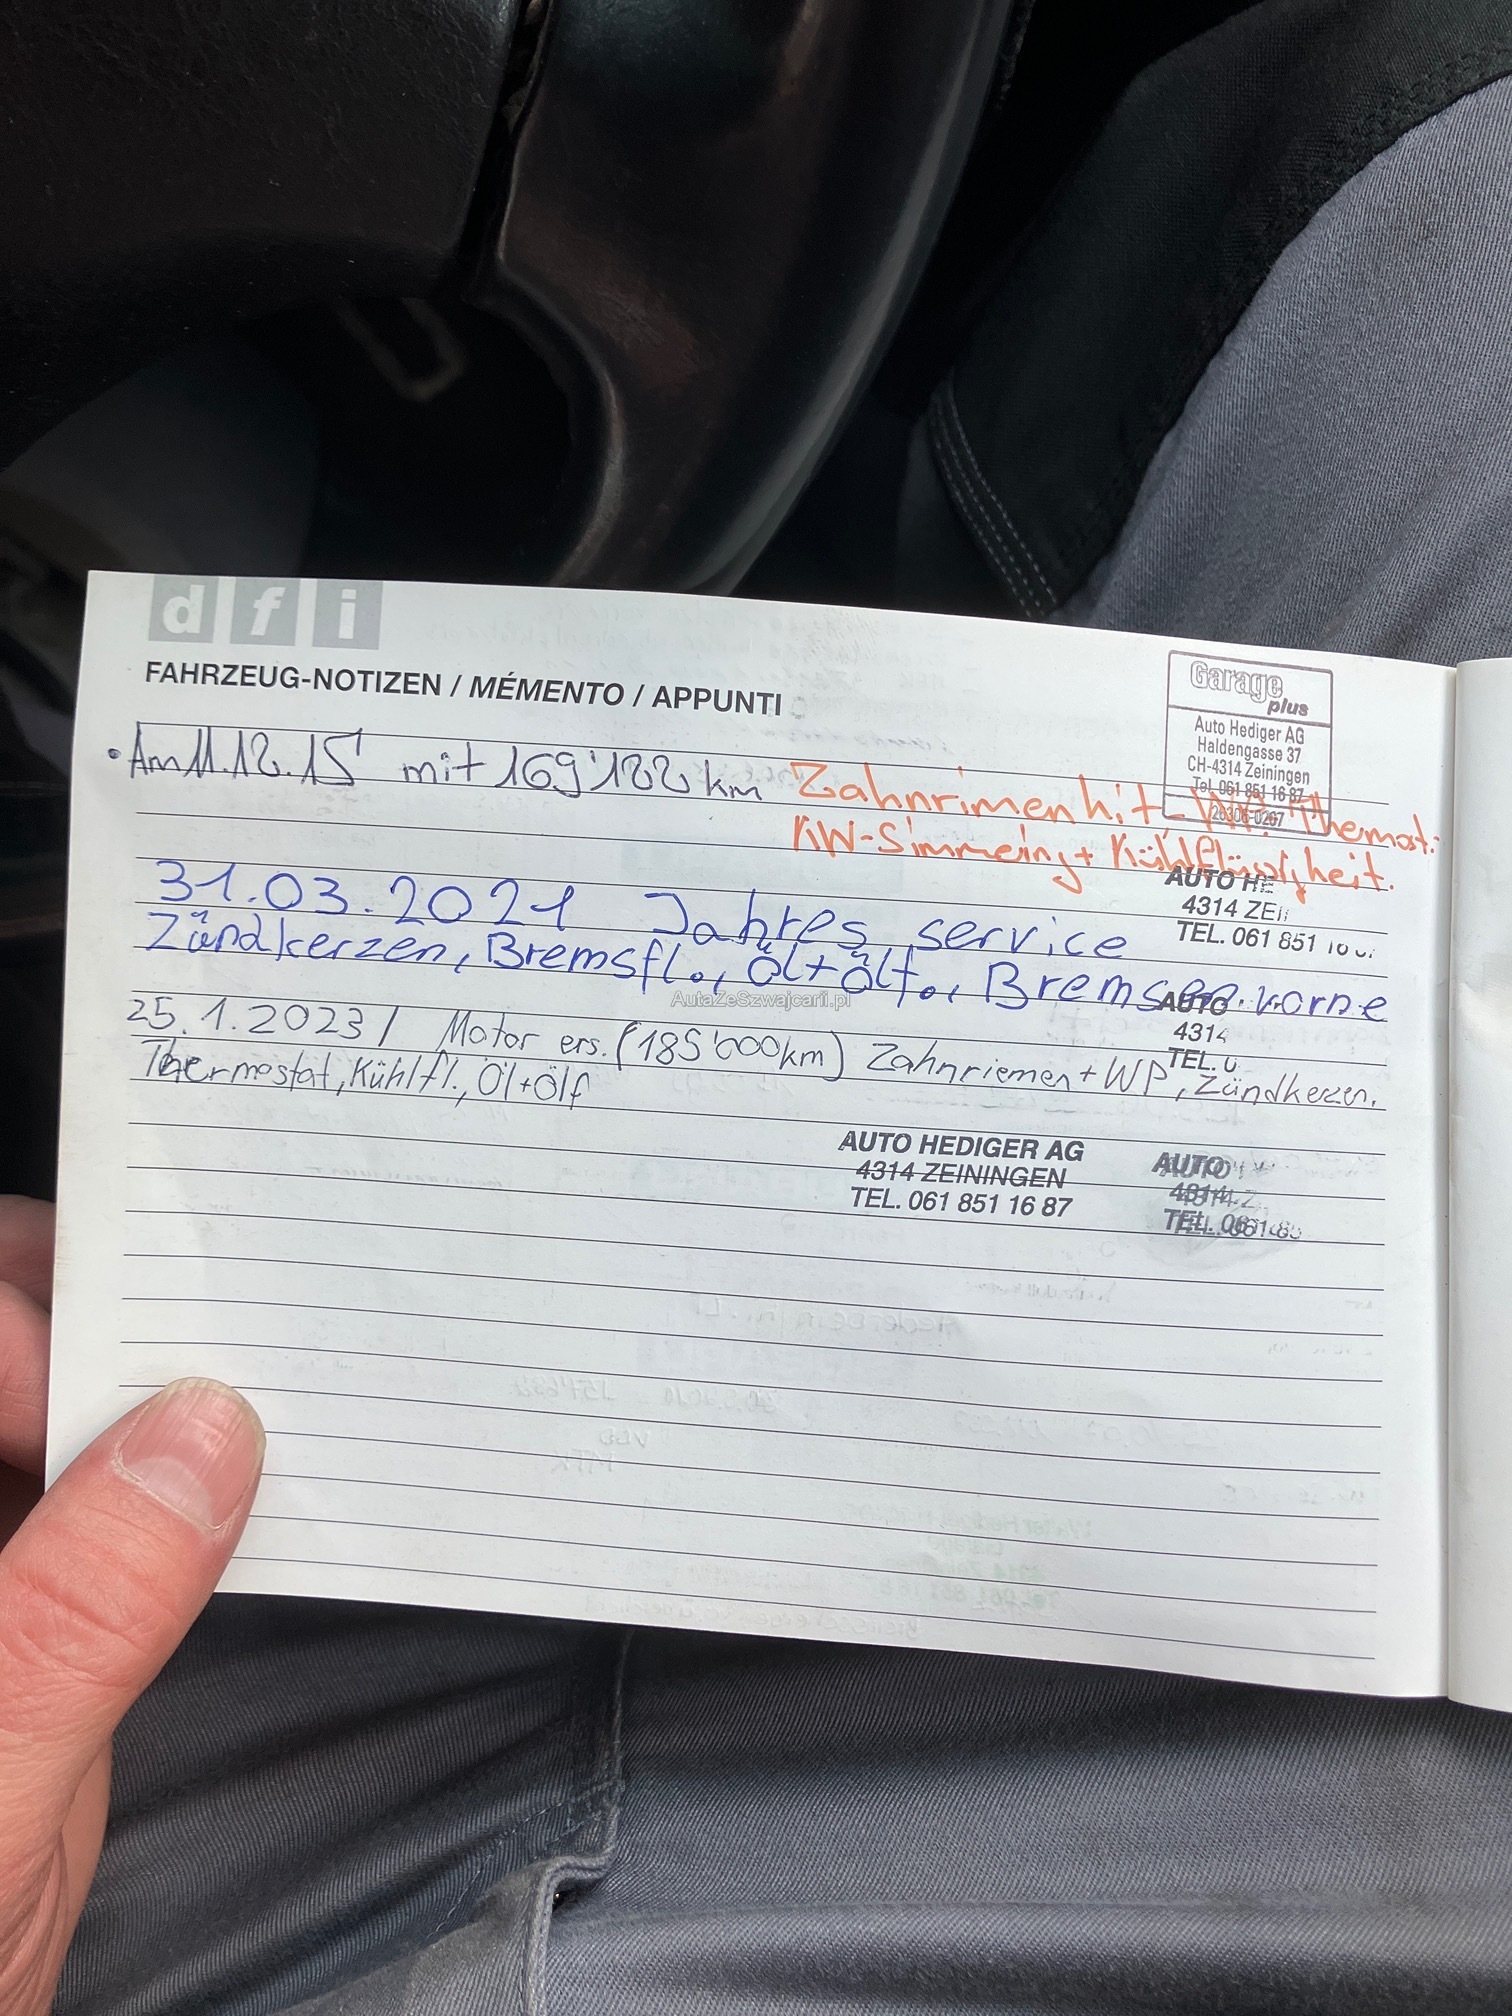 dfi
FAHRZEUG-NOTIZEN / MÉMENTO / APPUNTI
Garage
plus
Auto Hediger AG
Haldengasse 37
CH-4314 Zeiningen
Tel. 061 851 16 87
26306-0207
• Am 11.12.15 mit 169'122 km Zahnrimenkit - WP. Thermost.
KW-Simmering + Kühlflüssigkeit.
AUTO HE
4314 ZEI
TEL. 061 851 16
31.03.2021 Jahres service
Zündkerzen, Bremsfl., Öl+Ölf., Bremsen vorne
AutaZeSzwajcarii.pl
AUTO
4314
TEL. 0
25.1.2023 / Motor ers. (185'000km) Zahnriemen + WP, Zündkerzen,
Thermostat, Kühlfl., Öl+Ölf
AUTO HEDIGER AG
4314 ZEININGEN
TEL. 061 851 16 87
AUTO
4314 Z
TEL. 061 85